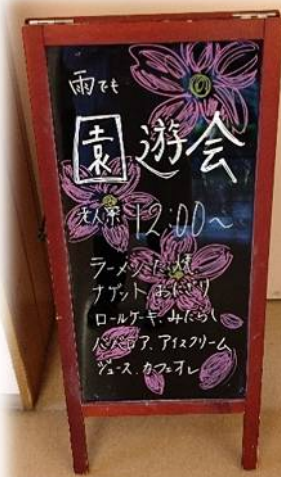 雨でも
園遊会
老人寮 12:00〜
ラーメン、たこ焼
ナゲット おにぎり
ロールケーキ、みたらし
ババロア、アイスクリーム
ジュース、カフェオレ